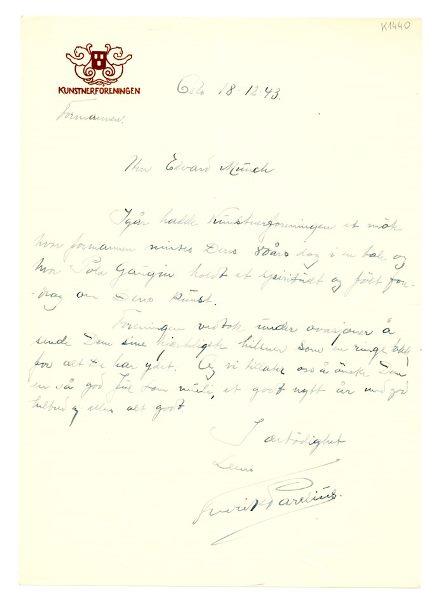 K1440
KUNSTNERFORENINGEN
Oslo 18-12-43.
Formannen.
Hr. Edvard Munch
Igår hadde Kunstnerforeningen et möte
hvor formannen mintes Deres 80års dag i en tale og
hvor Pola Gauguin holdt et og fölt fore-
drag om Deres Kunst.
Foreningen vedtok under ovasjoner å
sende Dem sine hjerteligste hilsener som en ringe takk
for alt De har ydet. Og vi tillater oss å önske Dem
en så god Jul som mulig, et godt nytt år med god
helbred og ellers alt godt
I ærbödighet
Deres
Parelius.